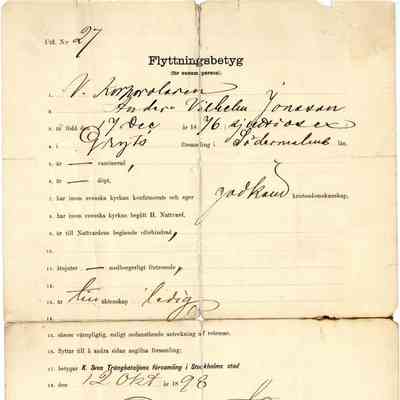 Utf. Nr 27
Flyttningsbetyg
(för ensam person).
1. V. Korporalen
2. Anders Vilhelm Jonsson
3. är född den 17 Dec är 1876
4. i Gryts församling i Södermanlands län,
5. är — vaccinerad,
6. är — döpt,
7. har inom svenska kyrkan konfirmerats och eger godkänd kristendomskunskap,
8. har inom svenska kyrkan begått H. Nattvard,
9. är till Nattvardens begående oförhindrad,
10.
11. åtnjuter — medborgerligt förtroende,
12.
13. är till äktenskap ledig
14.
15. såsom värnpligtig, enligt nedanstående anteckning af rekomme.
16. flyttar till å andra sidan angifna församling;
17. betygar K. Svea Trängbataljons församling i Stockholms stad
18. den 12 Okt. år 1896